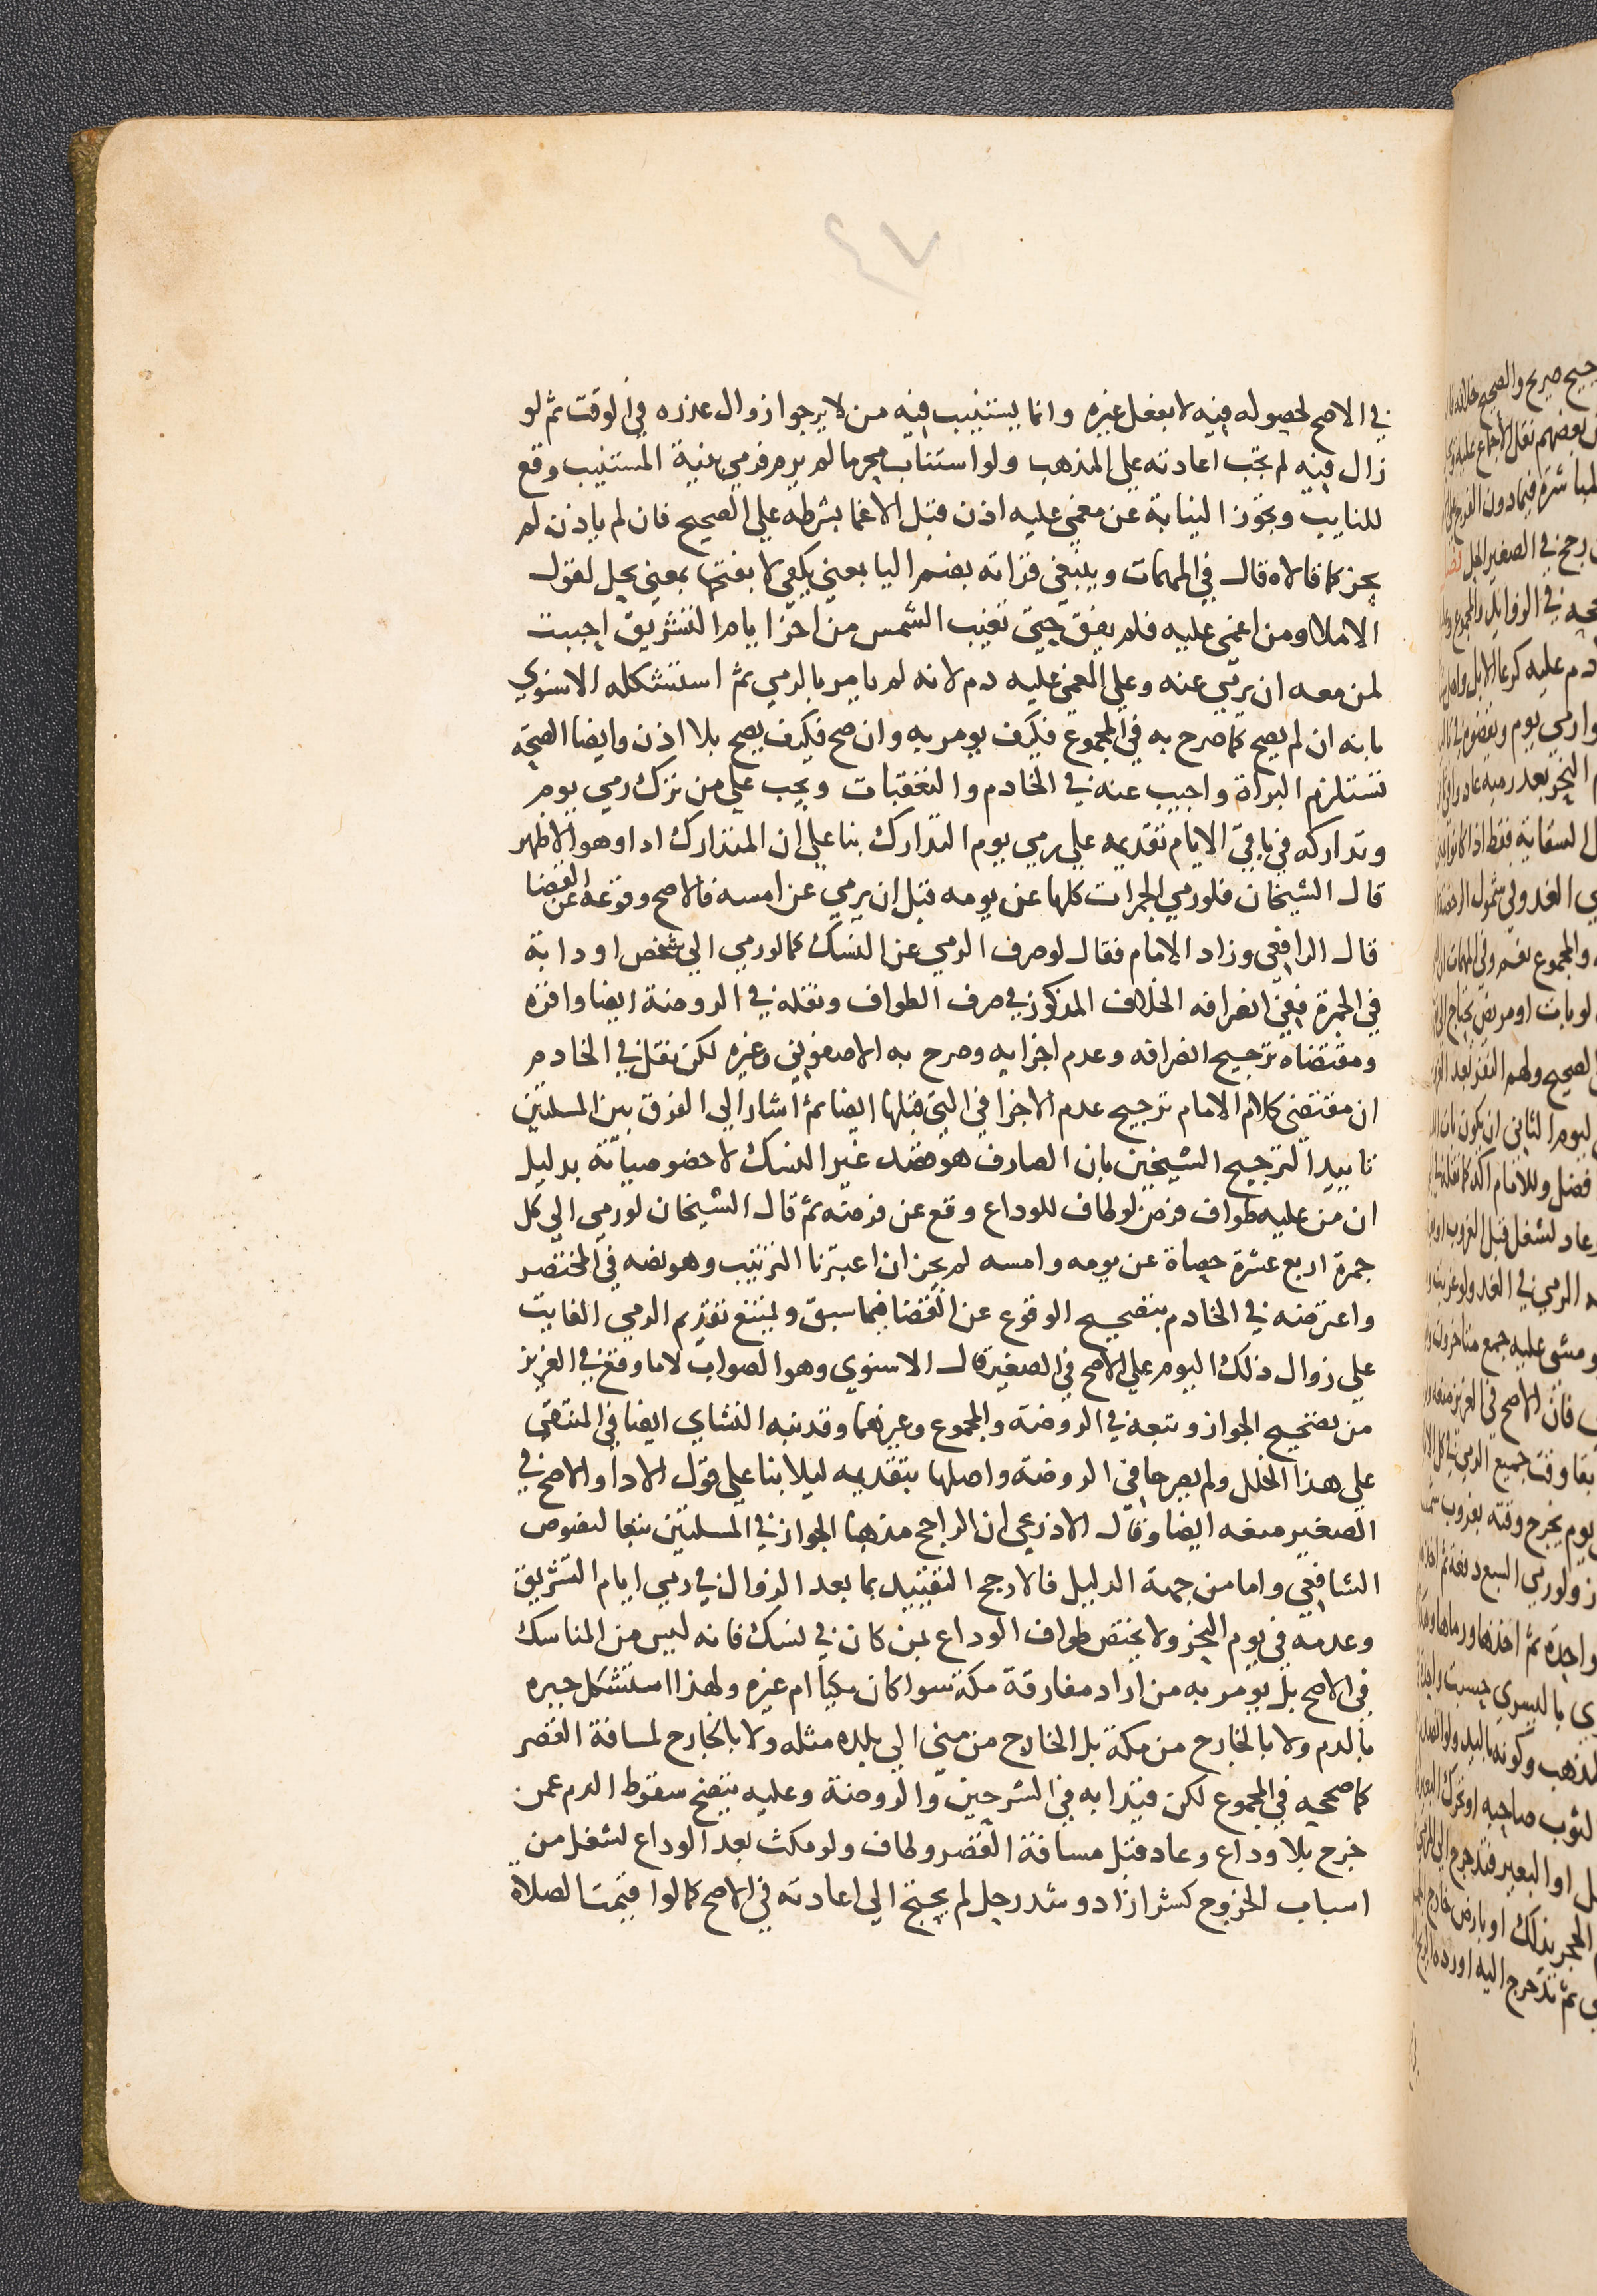 ٤٧
في الاصح لحصوله فيه لا بفعل غيره وانما يستنيب فيه من لا يرجوا زوال عذره في الوقت ثم لو
زال فيه لم تجب اعادته على المذهب ولو استناب محرما لم يرم فرمى بنية المستنيب وقع
للنايب وتجوز النيابة عن مغمى عليه اذن قبل الاغما بشرطه على الصحيح فان لم ياذن لم
يجز كما قالاه قال في المهمات وينبغي قراته بضم اليا بمعنى يكفي لا بفتحها بمعنى يحل لقول
الاملا ومن اغمي عليه فلم يفق حتى تغيب الشمس من اخر ايام التشريق احببت
لمن معه ان يرمي عنه وعلى المغمى عليه دم لانه لم يامر بالرمي ثم استشكله الاسنوي
بانه ان لم يصح كما صرح به في المجموع فكيف يومر به وان صح فكيف يصح بلا اذن وايضا الصحة
تستلزم البراة واجيب عنه في الخادم والتعقبات ويجب على من ترك رمي يوم
وتداركه في باقي الايام تقديمه على رمي يوم التدارك بنا على ان المتدارك ادا وهو الاظهر
قال الشيخان فلو رمى الجمرات كلها عن يومه قبل ان يرمي عن امسه فالاصح وقوعه عن القضا
قال الرافعي وزاد الامام فقال لو صرف الرمي عن النسك كما لو رمى الى شخص او دابة
في الجمرة ففي انصرافه الخلاف المذكور في صرف الطواف ونقله في الروضة ايضا واقره
ومقتضاه ترجيح انصرافه وعدم اجزايه وصرح به الاصفوني وغيره لكن نقل في الخادم
ان مقتضى كلام الامام ترجيح عدم الاجزا في التي قبلها ايضا ثم اشار الى الفرق بين المسلتين
تاييدا لترجيح الشيخين بان الصارف هو قصد غير النسك لا خصوصياته بدليل
ان من عليه طواف فرض لو طاف للوداع وقع عن فرضه ثم قال الشيخان لو رمى الى كل
جمرة اربع عشرة حصاة عن يومه وامسه لم يجز ان اعتبرنا الترتيب وهو نصه في المختصر
واعترضه في الخادم بتصحيح الوقوع عن القضا فيما سبق ويمتنع تقديم الرمي الفايت
على زوال ذلك اليوم على الاصح في الصغير قال الاسنوي وهو الصواب لا ما وقع في العزيز
من تصحيح الجواز وتبعه في الروضة والمجموع وغيرهما وقد نبه النشاي ايضا في المنتقى
على هذا الخلل ولم يصرحا في الروضة واصلها بتقديمه ليلا بنا على قول الادا والاصح في
الصغير منعه ايضا وقال الاذرعي ان الراجح مذهبا الجواز في المسلتين تبعا لنصوص
الشافعي واما من جهة الدليل فالارجح التقييد بما بعد الزوال في رمي ايام التشريق
وعدمه في يوم النحر ولا يختص طواف الوداع بمن كان في نسك فانه ليس من المناسك
في الاصح بل يومر به من اراد مفارقة مكة سوا كان مكيا ام غيره ولهذا استشكل جبره
بالدم ولا بالخارج من مكة بل الخارج من منى الى بلده مثله ولا بالخارج لمسافة القصر
كما صححه في المجموع لكن قيدا به في الشرحين والروضة وعليه يتضح سقوط الدم عمن
خرج بلا وداع وعاد قبل مسافة القصر وطاف ولو مكث بعد الوداع لشغل من
اسباب الخروج كشرا زاد وشد رحل لم يحتج الى اعادته في الاصح كما لو اقيمت الصلاة